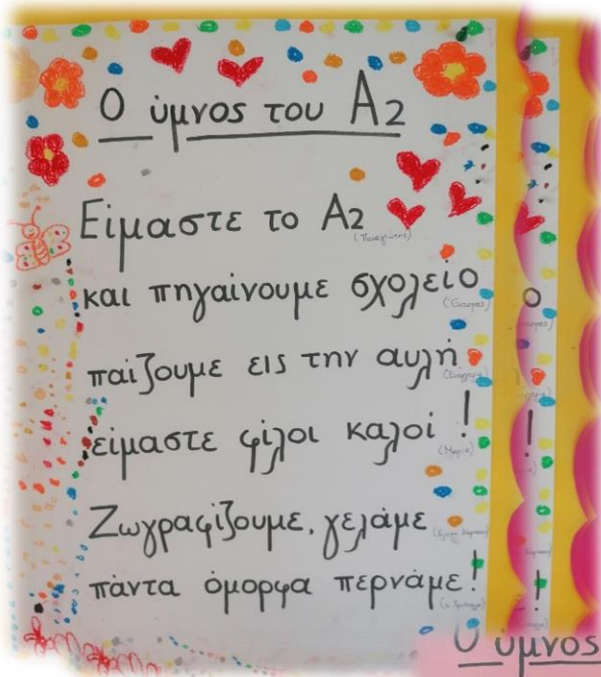 Ο ύμνος του Α2
Είμαστε το Α2
(Παναγιώτης)
και πηγαίνουμε σχολείο
παίζουμε εις την αυλή
είμαστε φίλοι καλοί!
(Μαρία)
Ζωγραφίζουμε, γελάμε
πάντα όμορφα περνάμε!
ο
!
!
Ο ύμνος